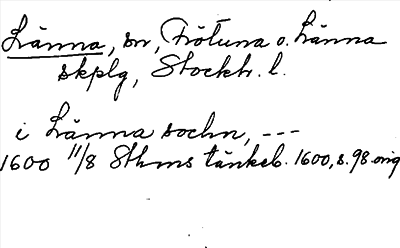 Länna, sn, Frötuna o. Länna
skplg, Stockh. l.
i Länna sochn, ---
1600 11/8 Sthms tänkeb. 1600, s. 98. orig